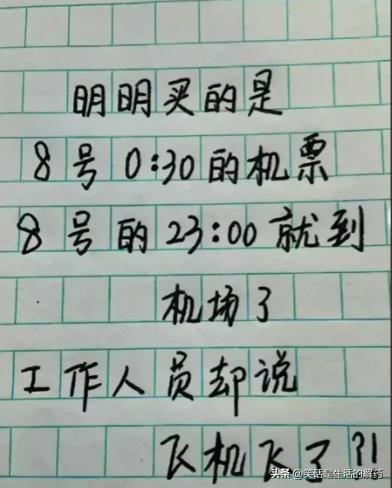 明明买的是
8号0:30的机票
8号的23:00就到
机场了
工作人员却说
飞机飞了?!
头条@笑话是生活的解药